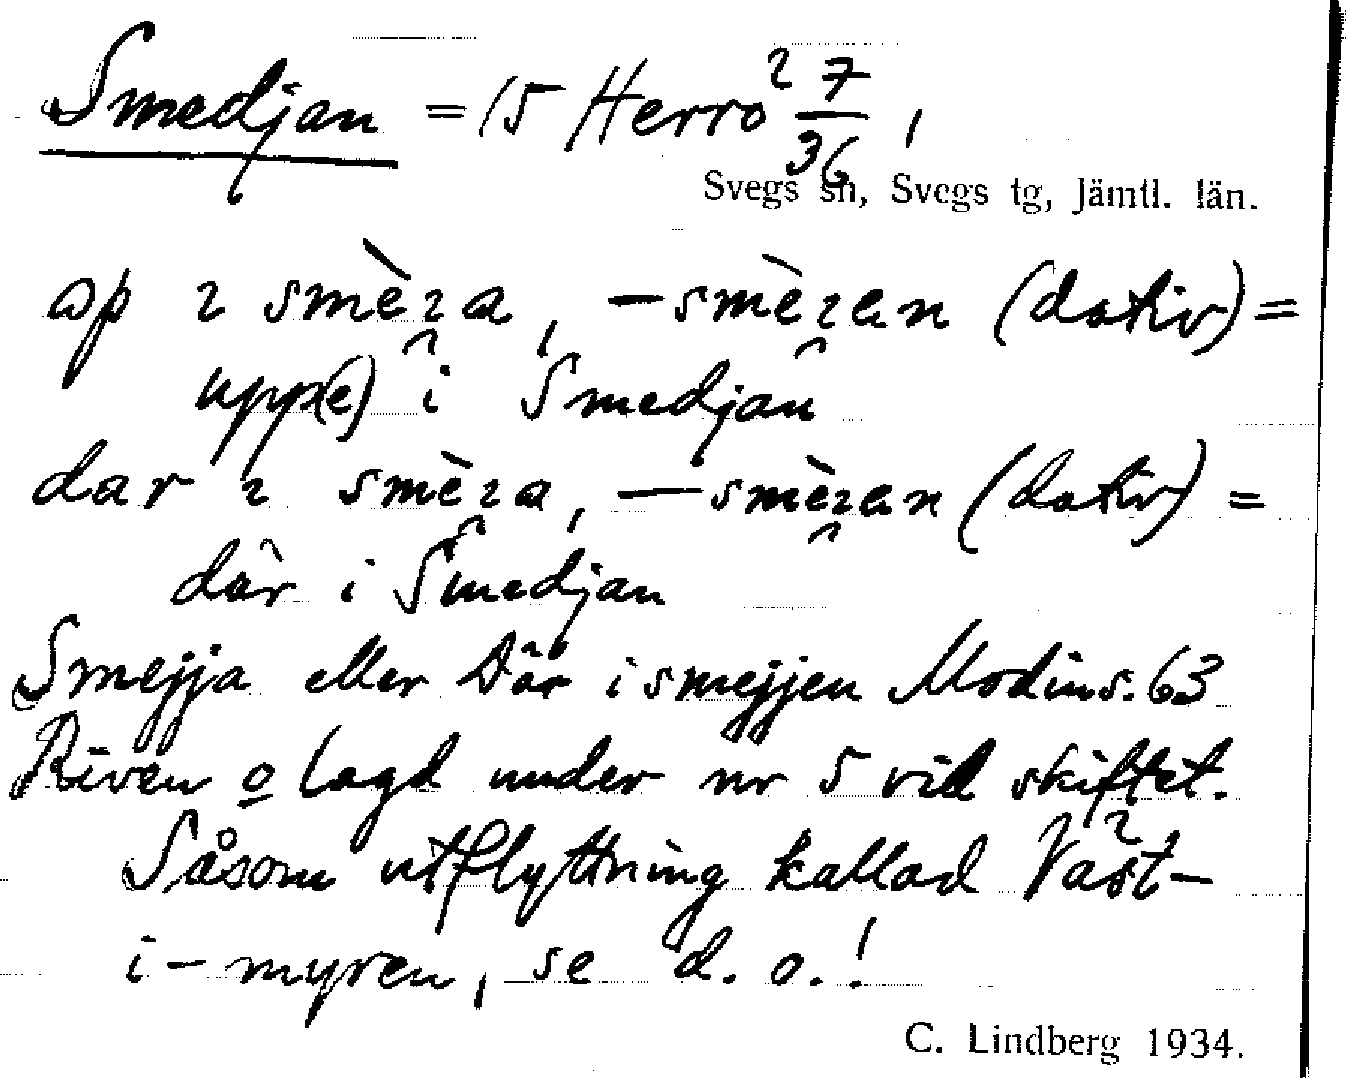 Smedjan = 15 Herrö 7/36,
Svegs sn, Svegs tg, Jämtl. län.
op ı smèıa, — smèıan (dativ) =
upp(e) i Smedjan
dar ı smèıa, — smèıan (dativ) =
där i Smedjan
Smejja eller Där i smejjen Modin s. 63
Riven o lagd under nr 5 vid skiftet.
Såsom utflyttning kallad Väst-
i-myren, se d. o.!
C. Lindberg 1934.